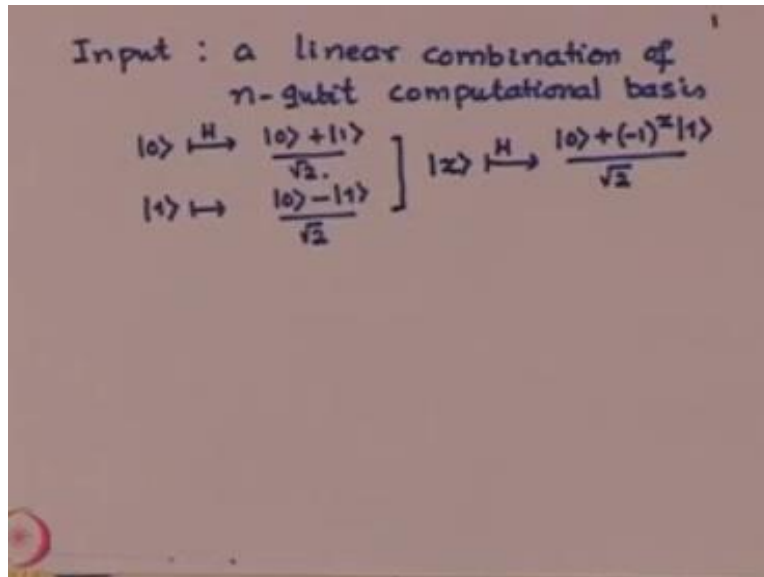 1
Input : a linear combination of
n-qubit computational basis
|0⟩ ↦ᴴ (|0⟩ + |1⟩)/√2. ] |x⟩ ↦ᴴ (|0⟩ + (-1)ˣ|1⟩)/√2
|1⟩ ↦ (|0⟩ - |1⟩)/√2